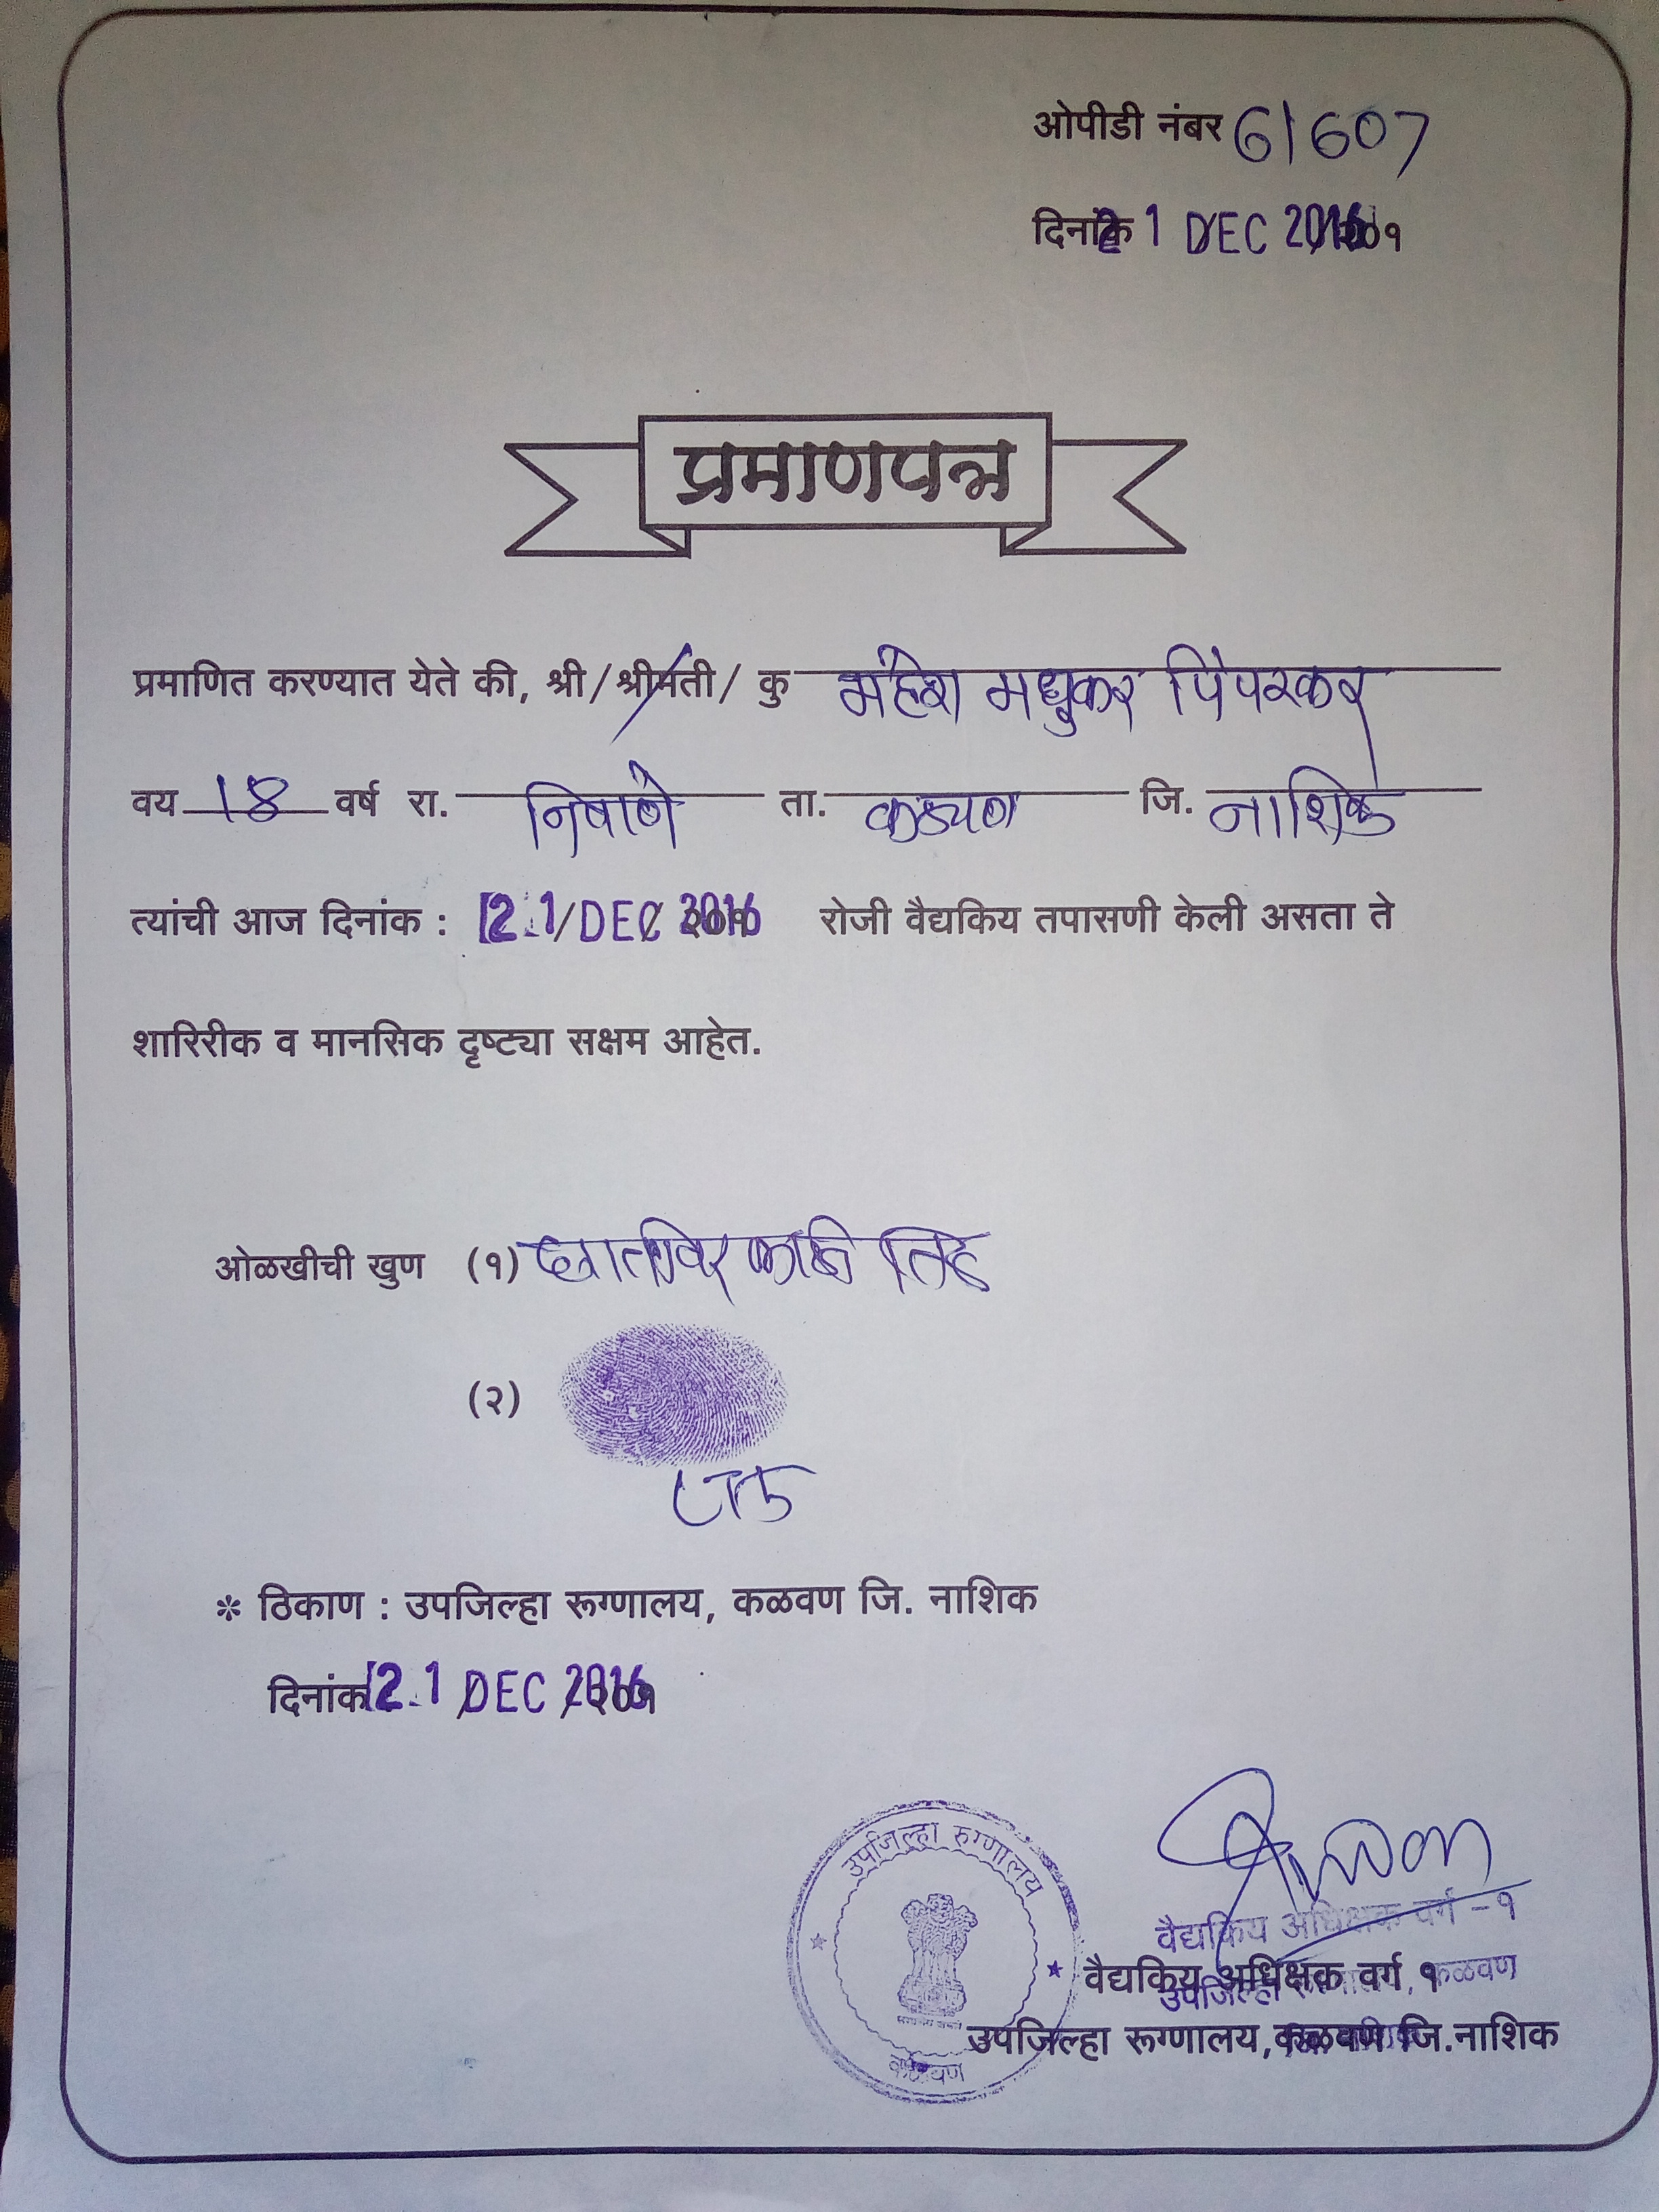 ओपीडी नंबर 61607
दिनांक 21 DEC 2016
प्रमाणपत्र
प्रमाणित करण्यात येते की, श्री/श्रीमती/ कु महेश मधुकर पिंपरकर
वय 18 वर्ष रा. निवाणे ता. कळवण जि. नाशिक
त्यांची आज दिनांक : 21/DEC 2016 रोजी वैद्यकिय तपासणी केली असता ते
शारिरीक व मानसिक दृष्ट्या सक्षम आहेत.
ओळखीची खुण (१)
(२)
* ठिकाण : उपजिल्हा रूग्णालय, कळवण जि. नाशिक
दिनांक 21 DEC 2016
उपजिल्हा रुग्णालय
कळवण
वैद्यकिय अधिक्षक वर्ग -१
वैद्यकिय अधिक्षक वर्ग १
उपजिल्हा कळवण
उपजिल्हा रूग्णालय,कळवण जि.नाशिक